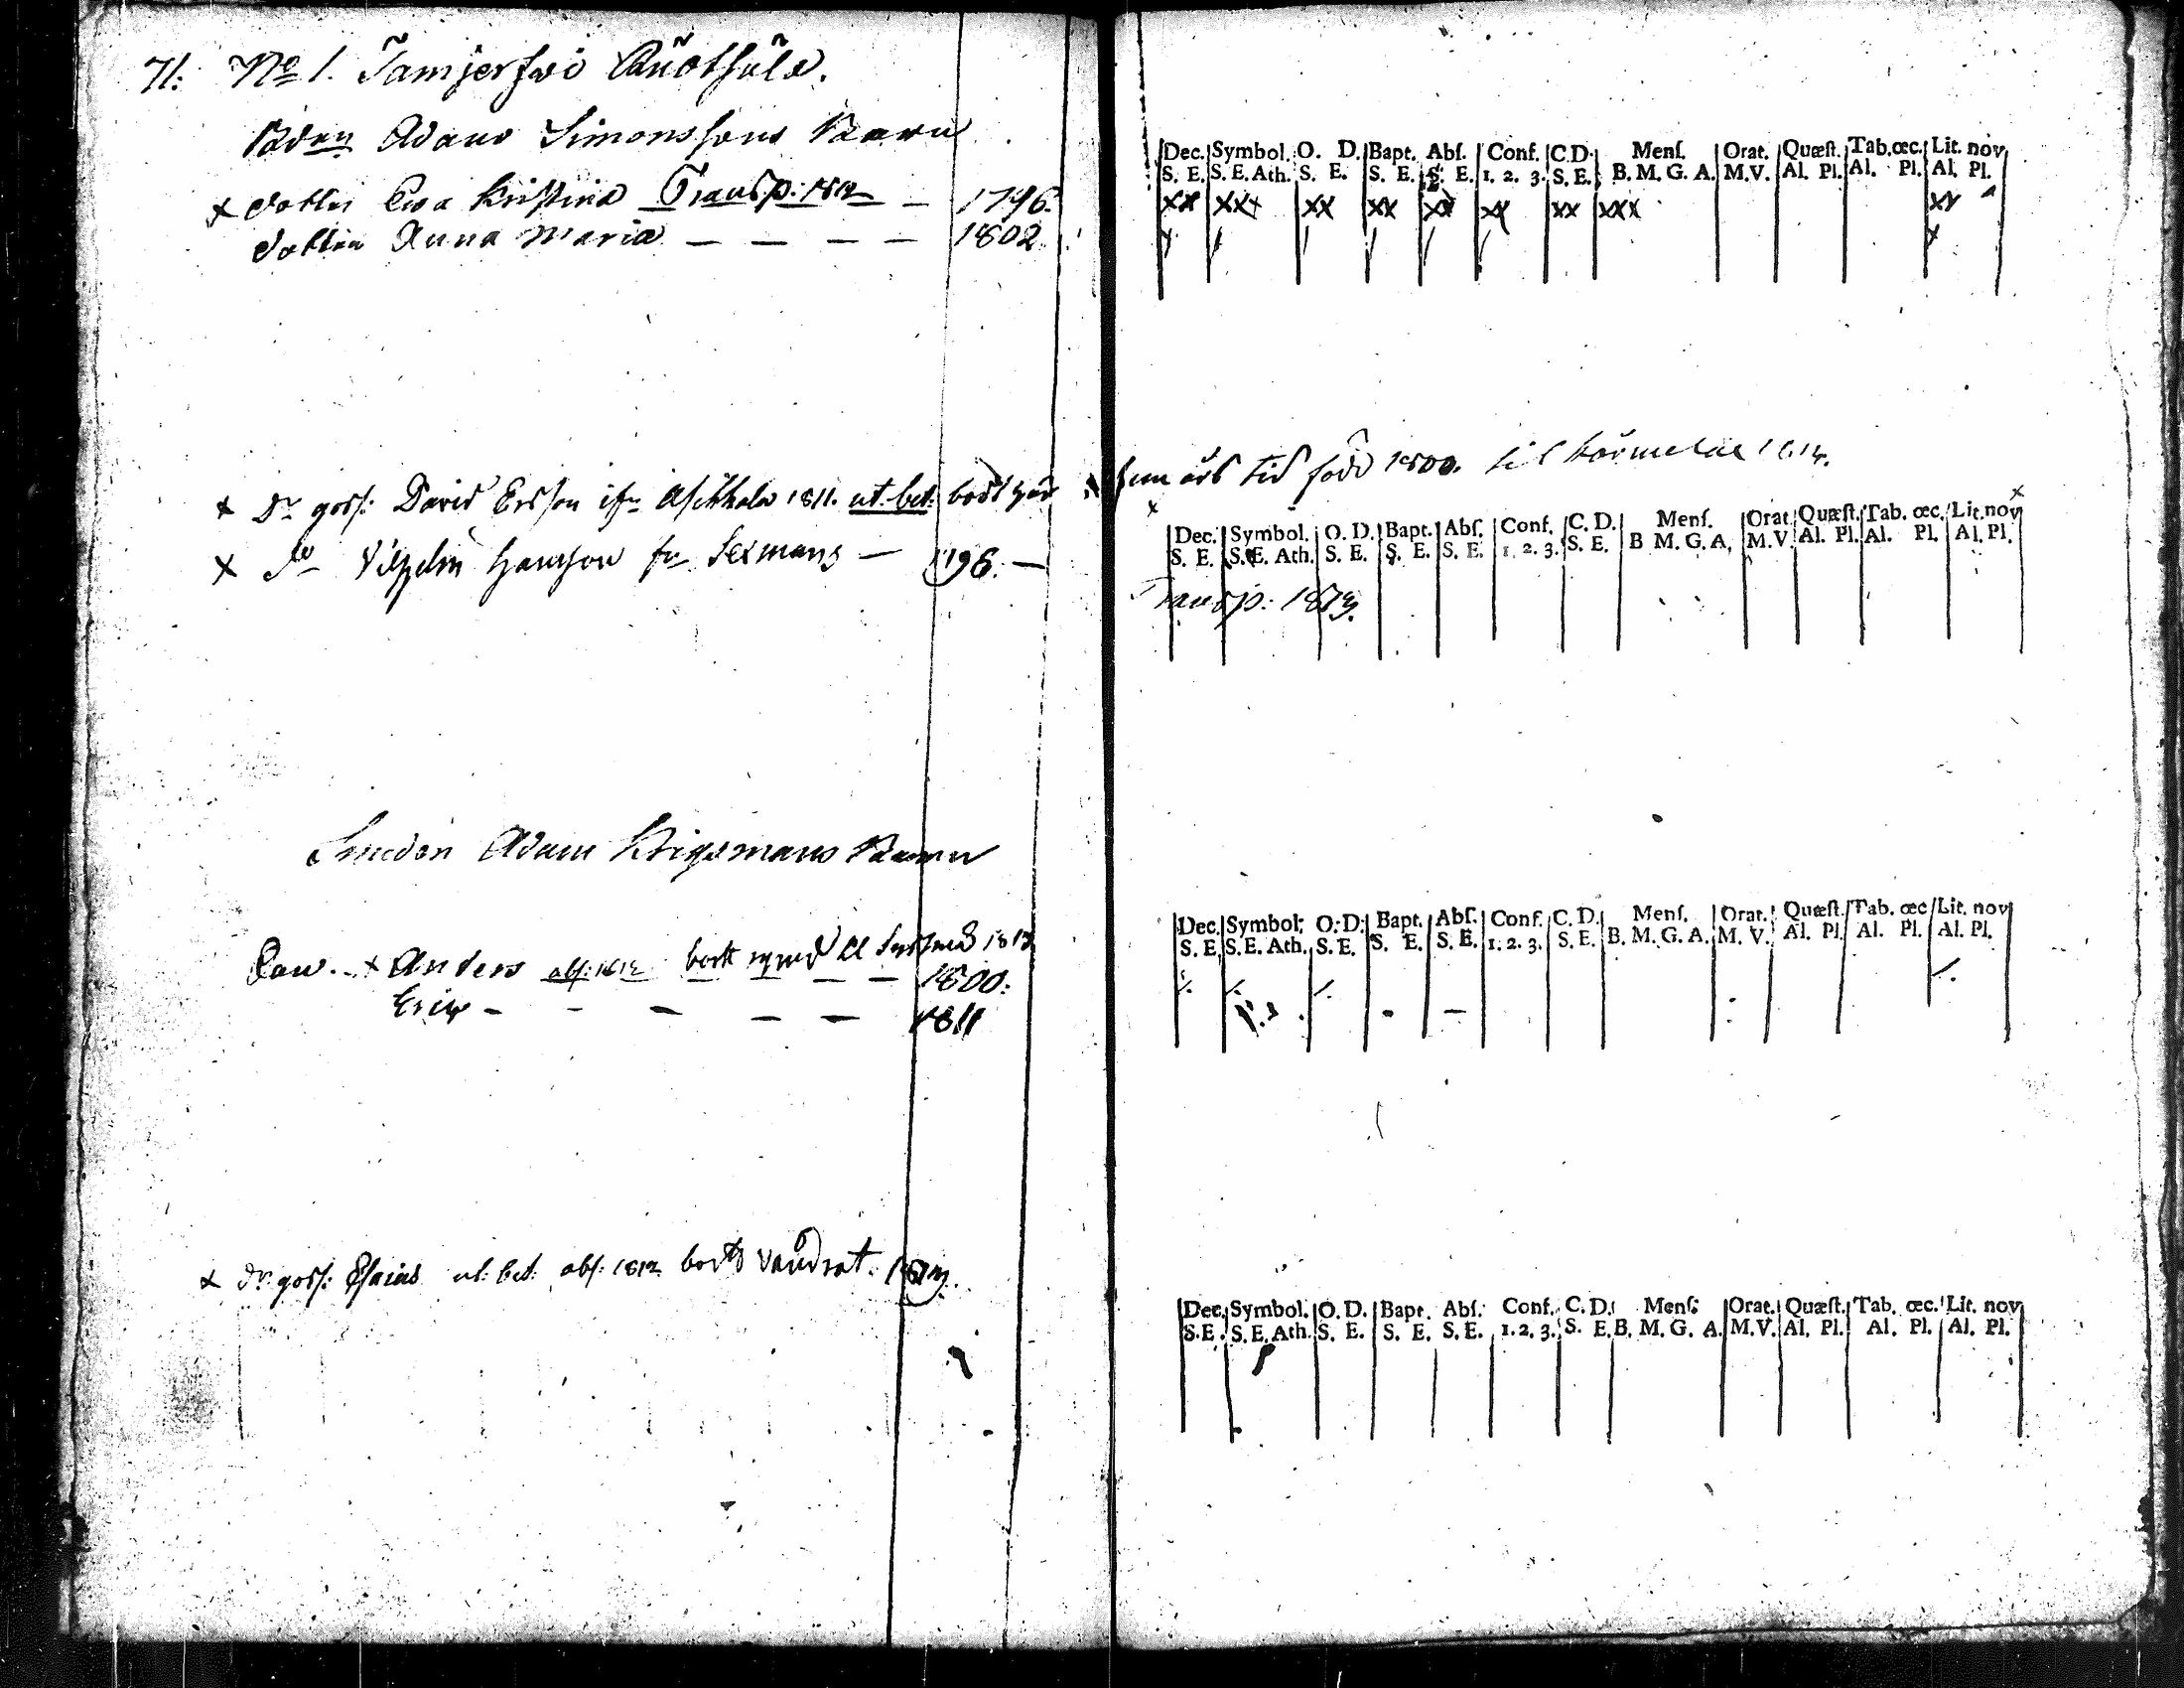 71. No 1. Tamjerfwi Ruotsula.
Bdens Adams Simonssons Barn
x dottren Ewa Kristina Transp: 1812 — 1796.
dottren Anna Maria — — — — 1802.
Dec. Symbol. O. D. Bapt. Abſ. Conf. C.D. Menſ. Orat. Quæſt. Tab. œc. Lit. nov
S. E. S. E. Ath. S. E. S. E. S. E. 1. 2. 3. S. E. B. M. G. A. M.V. Al. Pl. Al. Pl. Al. Pl.
xx xxx xx xx xx xx xx xxx xx
x Dr goss: David Ersson 1811. ut. bet: bodt här fem års tid född 1800. til 1814.
x Do Vilhelm Hansson fr Sexmans — 1796. — Transp: 1813.
Dec. Symbol. O. D. Bapt. Abſ. Conf. C. D. Menſ. Orat. Quæſt. Tab. œc. Lit. nov
S. E. S. E. Ath. S. E. S. E. S. E. 1. 2. 3. S. E. B M. G. A. M.V. Al. Pl. Al. Pl. Al. Pl.
Smeden Adam Krigsmans Barn
x Anders abs: 1812 bortt rymd 1813
— — — — 1800:
Eric — — — — — 1811
Dec. Symbol. O. D. Bapt. Abſ. Conf. C. D. Menſ. Orat. Quæſt. Tab. œc Lit. nov
S. E. S. E. Ath. S. E. S. E. S. E. 1. 2. 3. S. E. B. M. G. A. M. V. Al. Pl. Al. Pl. Al. Pl.
x dr. goss: Esaias ut: bet: abs: 1812 bortt vandrat. 1813.
Dec. Symbol. O. D. Bapt. Abſ. Conf. C. D. Menſ. Orat. Quæſt. Tab. œc. Lit. nov
S. E. S. E. Ath. S. E. S. E. S. E. 1. 2. 3. S. E. B. M. G. A. M. V. Al. Pl. Al. Pl. Al. Pl.